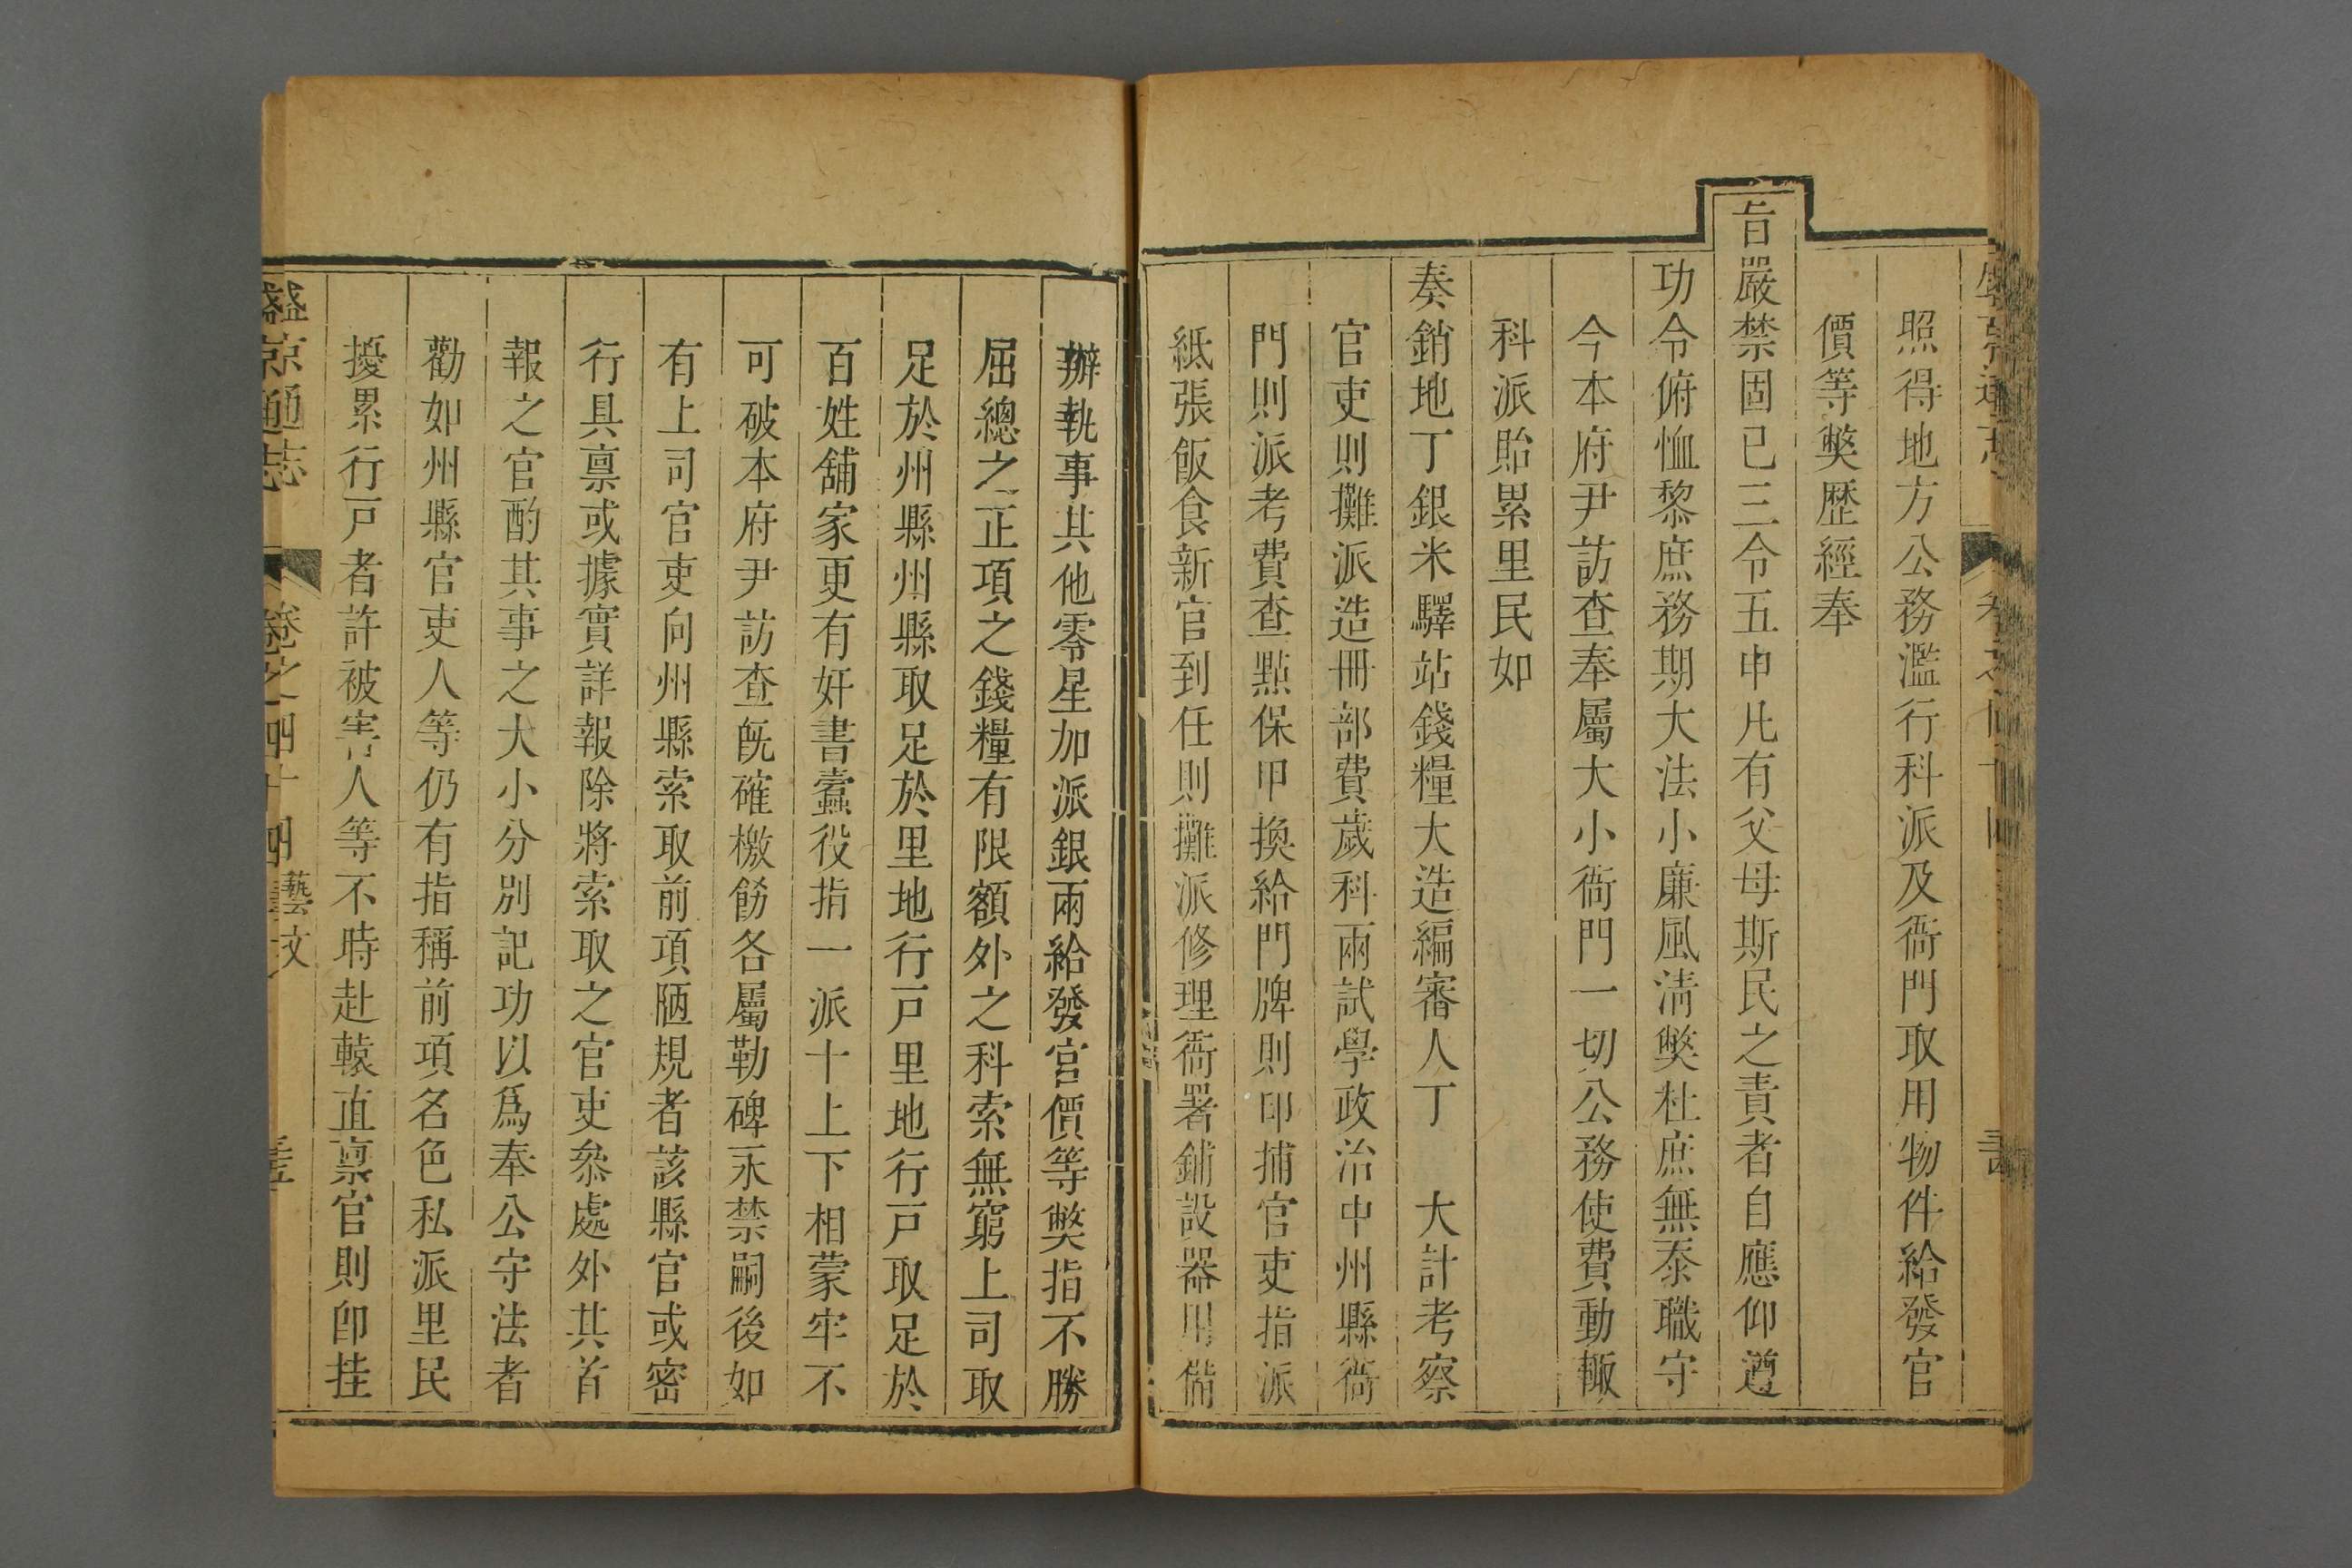 照得地方公務濫行科派及衙門取用物件給發官
價等獘歴經奉
旨嚴禁固已三令五申凡有父母斯民之責者自應仰遵
功令俯恤黎庶務期大法小廉風淸獘杜庶無忝職守
今本府尹訪查奉屬大小衙門一切公務使費動輒
科派貽累里民如
奏銷地丁銀米驛站錢糧大造編審人丁　大計考察
官吏則攤派造冊部費歲科兩試學政治中州縣衙
門則派考費查點保甲換給門牌則印捕官吏指派
紙張飯食新官到任則攤派修理衙署鋪設器用備
辦執事其他零星加派銀兩給發官價等獘指不勝
屈總之正項之錢糧有限額外之科索無窮上司取
足於州縣州縣取足於里地行戸里地行戸取足於
百姓舖家更有奸書蠹役指一派十上下相蒙牢不
可破本府尹訪查旣確檄飭各屬勒碑永禁嗣後如
有上司官吏向州縣索取前項陋規者該縣官或密
行具禀或據實詳報除將索取之官吏叅處外其首
報之官酌其事之大小分別記功以爲奉公守法者
勸如州縣官吏人等仍有指稱前項名色私派里民
擾累行戸者許被害人等不時赴轅直禀官則卽挂
盛京通志　卷之四十四　藝文